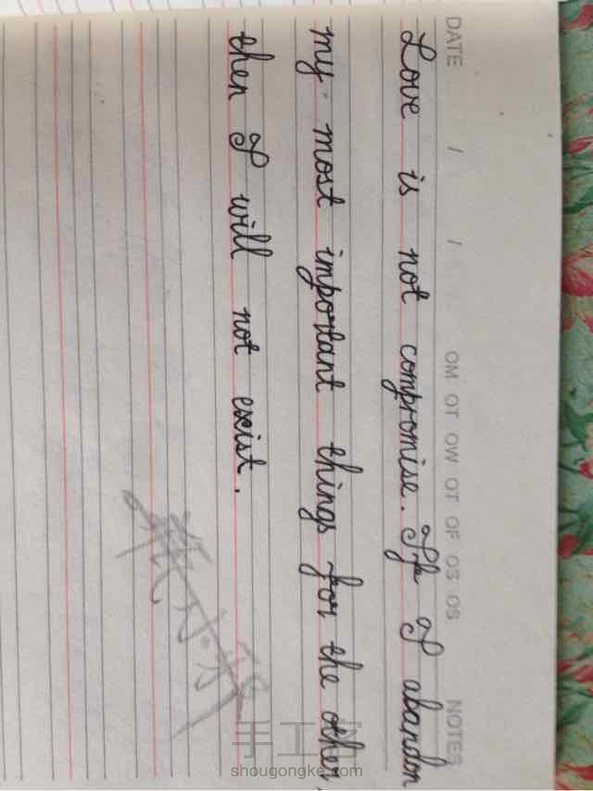 DATE / / OM OT OW OT OF OS OS NOTES
Love is not compromise. If I abandon
my most important things for the other,
then I will not exist.
手工客
shougongke.com